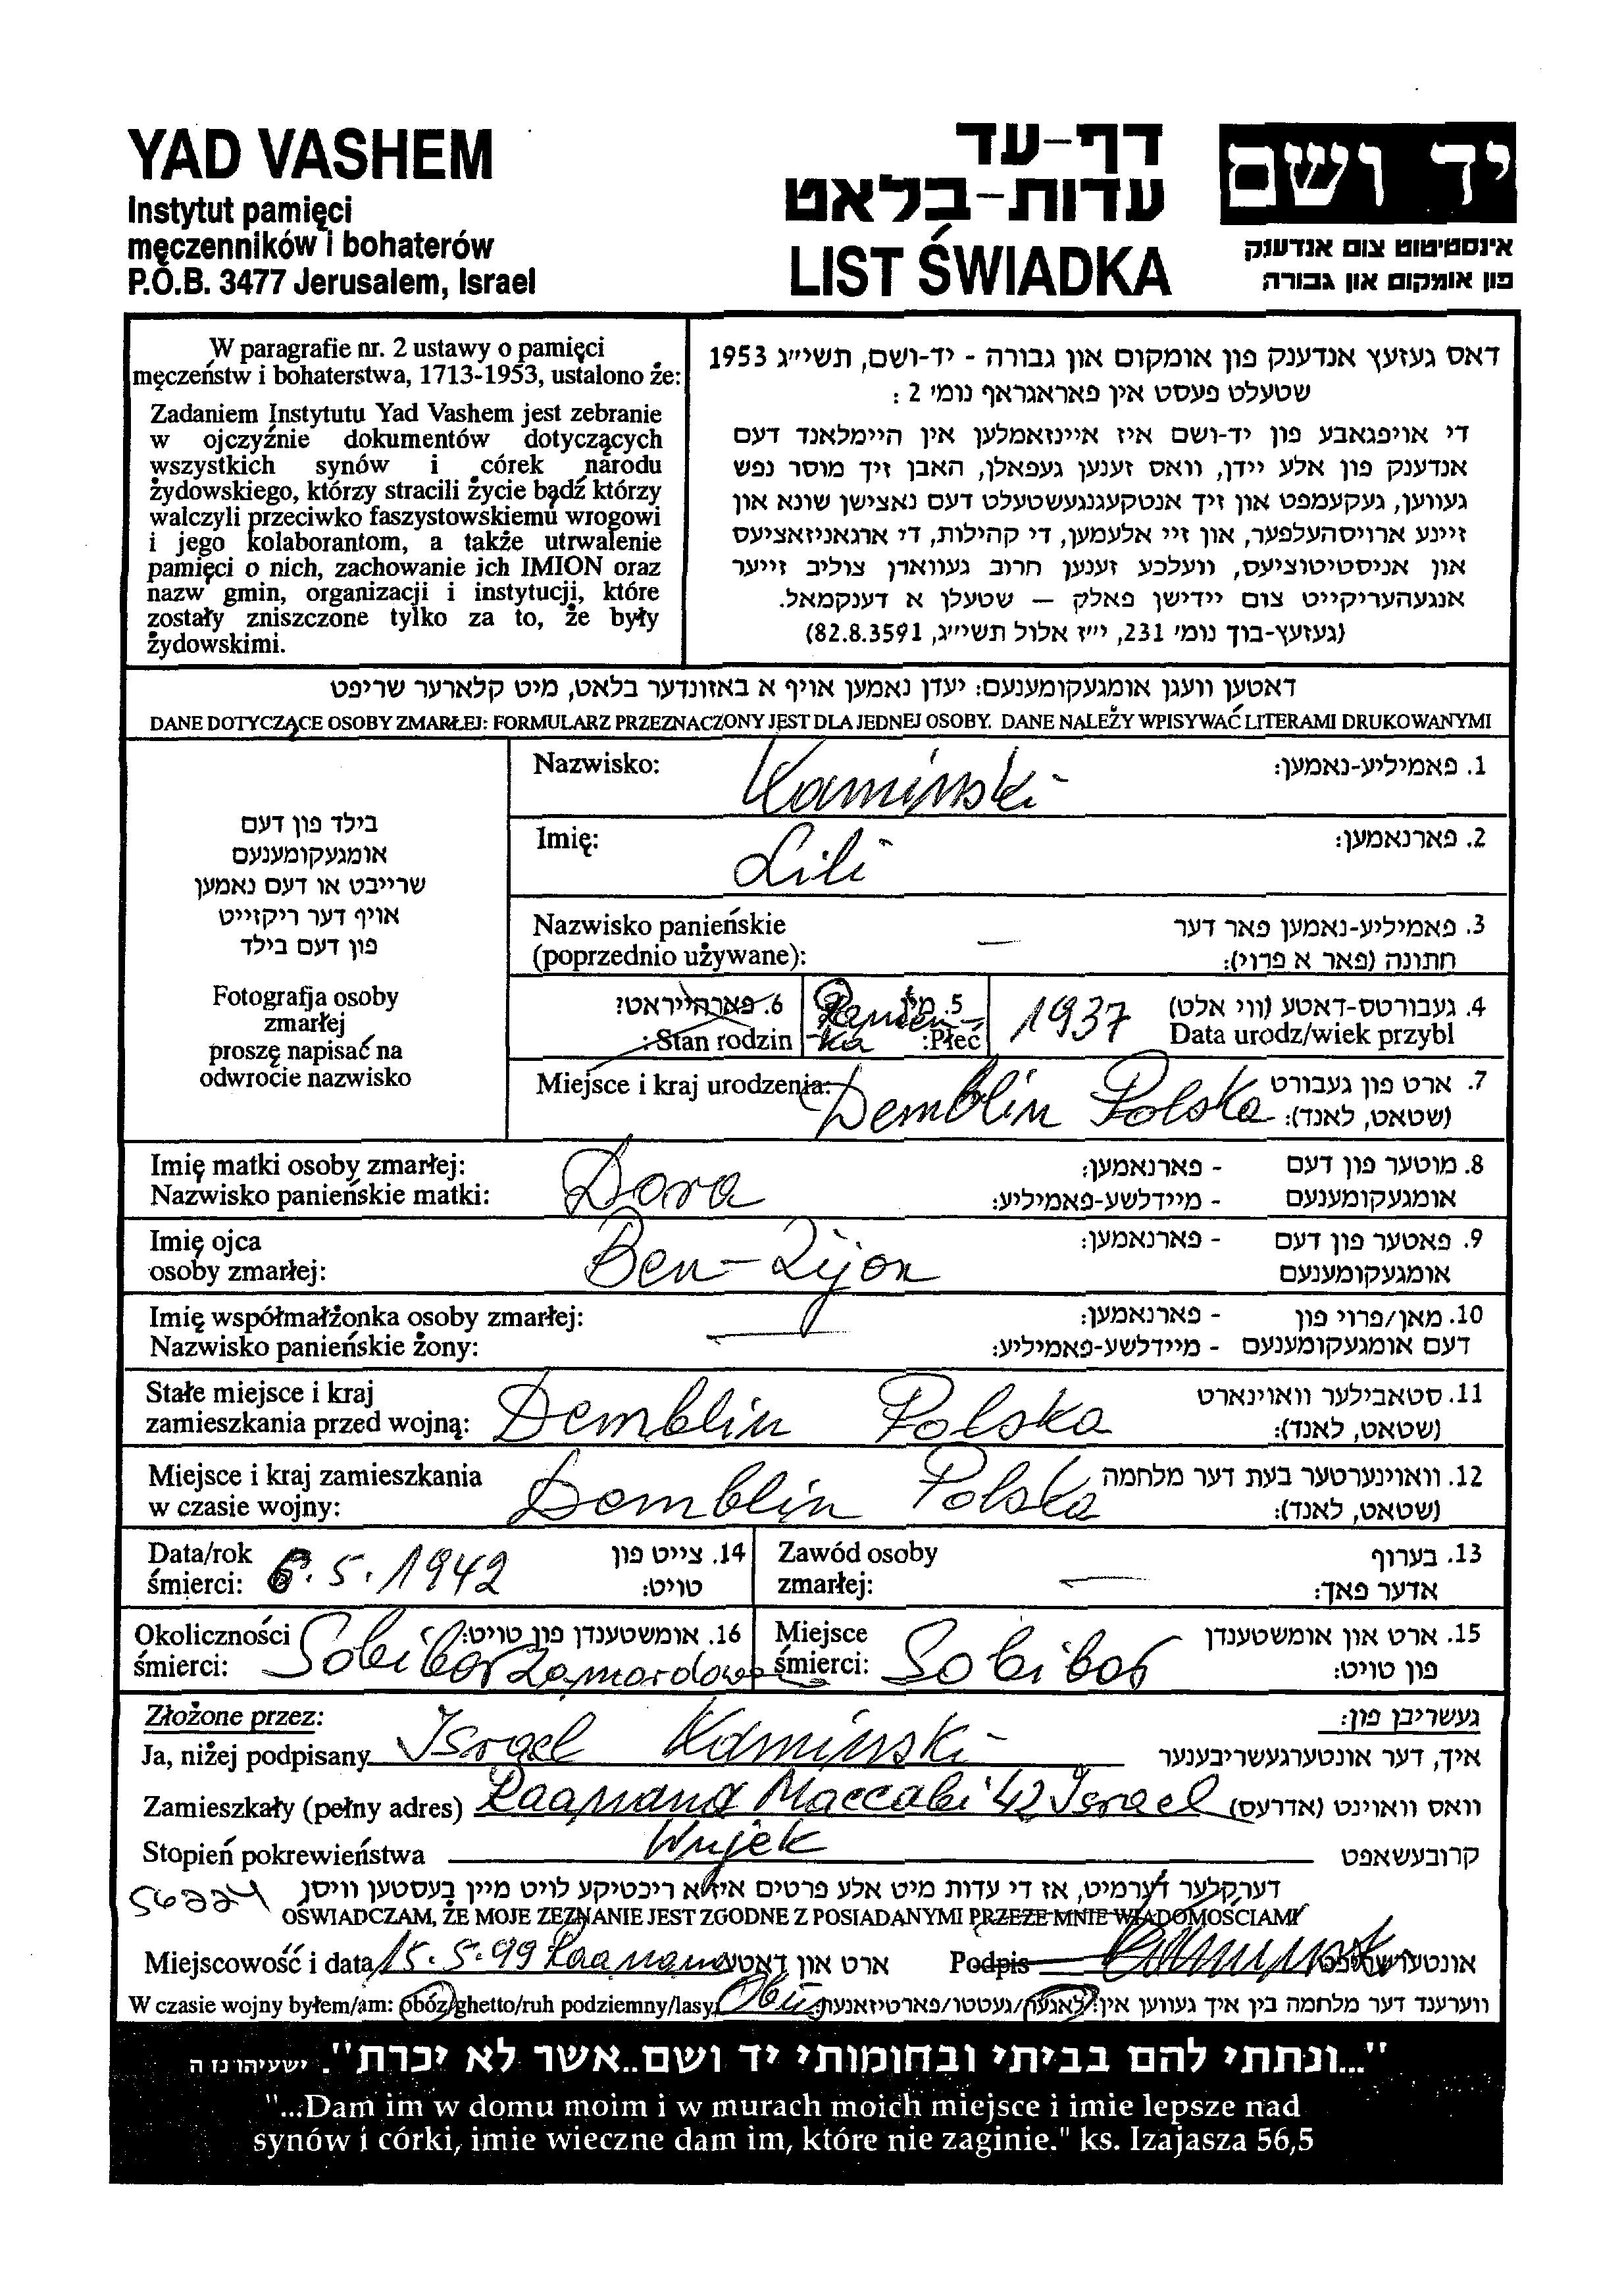 YAD VASHEM
Instytut pamięci
męczenników i bohaterów
P.O.B. 3477 Jerusalem, Israel
דף-עד
עדות-בלאט
LIST ŚWIADKA
יד ושם
אינסטיטוט צום אנדענק
פון אומקום און גבורה
W paragrafie nr. 2 ustawy o pamięci
męczeństw i bohaterstwa, 1713-1953, ustalono że:
Zadaniem Instytutu Yad Vashem jest zebranie
w ojczyźnie dokumentów dotyczących
wszystkich synów i córek narodu
żydowskiego, którzy stracili życie bądź którzy
walczyli przeciwko faszystowskiemu wrogowi
i jego kolaborantom, a także utrwalenie
pamięci o nich, zachowanie ich IMION oraz
nazw gmin, organizacji i instytucji, które
zostały zniszczone tylko za to, że były
żydowskimi.
דאס געזעץ אנדענק פון אומקום און גבורה - יד-ושם, תשי״ג 1953
שטעלט פעסט אין פאראגראף נומ׳ 2 :
די אויפגאבע פון יד-ושם איז איינזאמלען אין היימלאנד דעם
אנדענק פון אלע יידן, וואס זענען געפאלן, האבן זיך מוסר נפש
געווען, געקעמפט און זיך אנטקעגנגעשטעלט דעם נאצישן שונא און
זיינע ארויסהעלפער, און זיי אלעמען, די קהילות, די ארגאניזאציעס
און אניסטיטוציעס, וועלכע זענען חרוב געווארן צוליב זייער
אנגעהעריקייט צום יידישן פאלק — שטעלן א דענקמאל.
(געזעץ-בוך נומ׳ 231, י״ז אלול תשי״ג, 82.8.3591)
דאטען וועגן אומגעקומענעם: יעדן נאמען אויף א באזונדער בלאט, מיט קלארער שריפט
DANE DOTYCZĄCE OSOBY ZMARŁEJ: FORMULARZ PRZEZNACZONY JEST DLA JEDNEJ OSOBY. DANE NALEŻY WPISYWAĆ LITERAMI DRUKOWANYMI
בילד פון דעם
אומגעקומענעם
שרייבט או דעם נאמען
אויף דער ריקזייט
פון דעם בילד
Fotografja osoby
zmarłej
proszę napisać na
odwrocie nazwisko
Nazwisko: Kamiński 1. פאמיליע-נאמען:
Imię: Lili 2. פארנאמען:
Nazwisko panieńskie 3. פאמיליע-נאמען פאר דער
(poprzednio używane): — חתונה (פאר א פרוי):
6. פארהייראט? 5. מין 4. געבורטס-דאטע (ווי אלט)
Stan rodzin: Panien-ka Płeć: 1937 Data urodz/wiek przybl
Miejsce i kraj urodzenia: Demblin Polska 7. ארט פון געבורט
(שטאט, לאנד):
Imię matki osoby zmarłej: Dora - פארנאמען: 8. מוטער פון דעם
Nazwisko panieńskie matki: - מיידלשע-פאמיליע: אומגעקומענעם
Imię ojca - פארנאמען: 9. פאטער פון דעם
osoby zmarłej: Ben-Zijon אומגעקומענעם
Imię współmałżonka osoby zmarłej: - פארנאמען: 10. מאן/פרוי פון
Nazwisko panieńskie żony: — - מיידלשע-פאמיליע: דעם אומגעקומענעם
Stałe miejsce i kraj 11. סטאבילער וואוינארט
zamieszkania przed wojną: Demblin Polska (שטאט, לאנד):
Miejsce i kraj zamieszkania 12. וואוינערטער בעת דער מלחמה
w czasie wojny: Demblin Polska (שטאט, לאנד):
Data/rok 14. צייט פון Zawód osoby 13. בערוף
śmierci: 6.5.1942 טויט: zmarłej: — אדער פאך:
Okoliczności 16. אומשטענדן פון טויט: Miejsce 15. ארט און אומשטענדן
śmierci: Sobibor Zamordowa śmierci: Sobibor פון טויט:
Złożone przez: געשריבן פון:
Ja, niżej podpisany Israel Kamiński איך, דער אונטערגעשריבענער
Zamieszkały (pełny adres) Raanana Maccabi 42 Israel וואס וואוינט (אדרעס)
Stopień pokrewieństwa Wujek קרובעשאפט
דערקלער דערמיט, אז די עדות מיט אלע פרטים איז א ריכטיקע לויט מיין בעסטען וויסן
OŚWIADCZAM, ŻE MOJE ZEZNANIE JEST ZGODNE Z POSIADANYMI PRZEZE MNIE WIADOMOŚCIAMI
Miejscowość i data 15.5.99 Raanana ארט און דאטע Podpis Kamiński אונטערשריפט
W czasie wojny byłem/am: obóz/ghetto/ruh podziemny/lasy: Obóz ווערענד דער מלחמה בין איך געווען אין: לאגער/געטטו/פארטיזאנער:
"...ונתתי להם בביתי ובחומותי יד ושם..אשר לא יכרת". ישעיהו נו ה
"...Dam im w domu moim i w murach moich miejsce i imie lepsze nad
synów i córki, imie wieczne dam im, które nie zaginie." ks. Izajasza 56,5